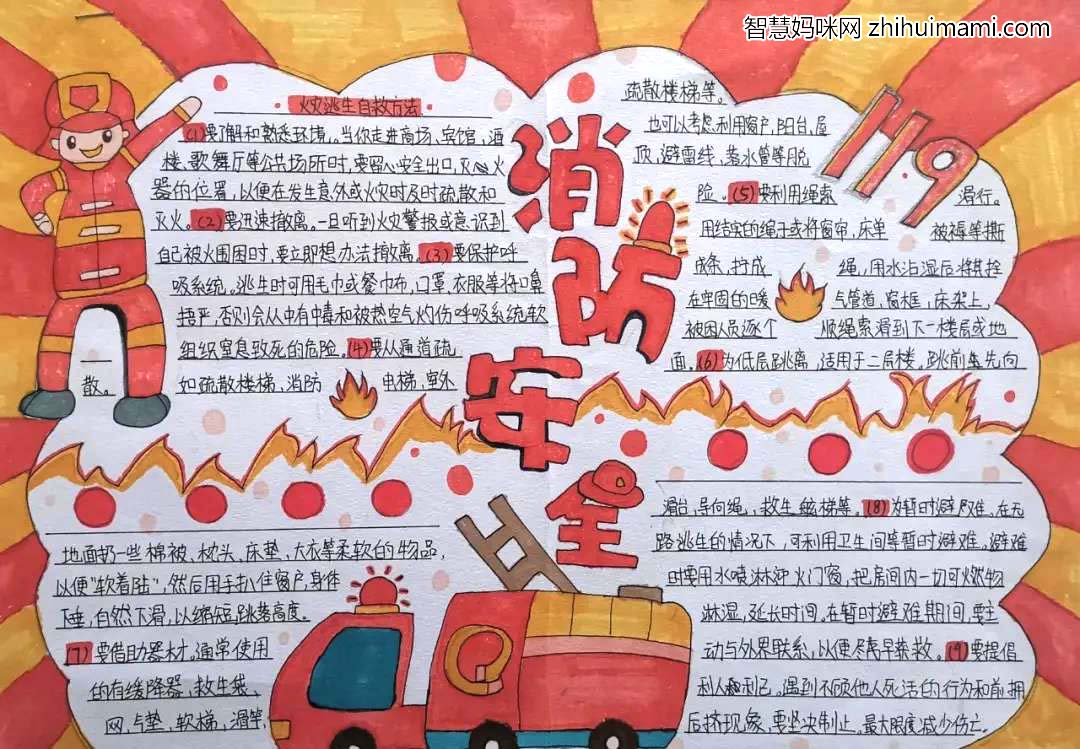 智慧妈咪网 zhihuimami.com
消防安全
119
火灾逃生自救方法
(1)要了解和熟悉环境。当你走进商场、宾馆,酒
楼、歌舞厅等公共场所时,要留心安全出口,灭火
器的位置,以便在发生意外或火灾时及时疏散和
灭火。(2)要迅速撤离。一旦听到火灾警报或意识到
自己被火围困时,要立即想办法撤离。(3)要保护呼
吸系统。逃生时可用毛巾或餐巾布,口罩、衣服等将口鼻
捂严,否则会从中有中毒和被热空气灼伤呼吸系统软
组织窒息致死的危险。(4)要从通道疏
散。如疏散楼梯,消防电梯,室外
疏散楼梯等。
也可以考虑利用窗户,阳台,屋
顶,避雷线,落水管等脱
险。(5)要利用绳索滑行。
用结实的绳子或将窗帘,床单被褥等撕
成条,拧成绳,用水沾湿后将其拴
在牢固的暖与管道,窗框,床架上,
被困人员逐个顺绳索滑到下一楼层或地
面。(6)为低层跳离,适用于二层楼。跳前先向
地面扔一些棉被、枕头、床垫、大衣等柔软的物品,
以便“软着陆”,然后用手扒住窗户,身体
下垂,自然下滑,以缩短跳落高度。
(7)要借助器材。通常使用
的有缓降器,救生袋,
网,气垫,软梯,滑竿,
滑台,导向绳,救生梯等。(8)为暂时避难。在无
路逃生的情况下,可利用卫生间等暂时避难。避难
时要用水喷淋迎火门窗,把房间内一切可燃物
淋湿,延长时间。在暂时避难期间,要主
动与外界联系,以便尽早获救。(9)要提倡
利人利己。遇到不顾他人死活的行为和前拥
后挤现象,要坚决制止。最大限度减少伤亡。